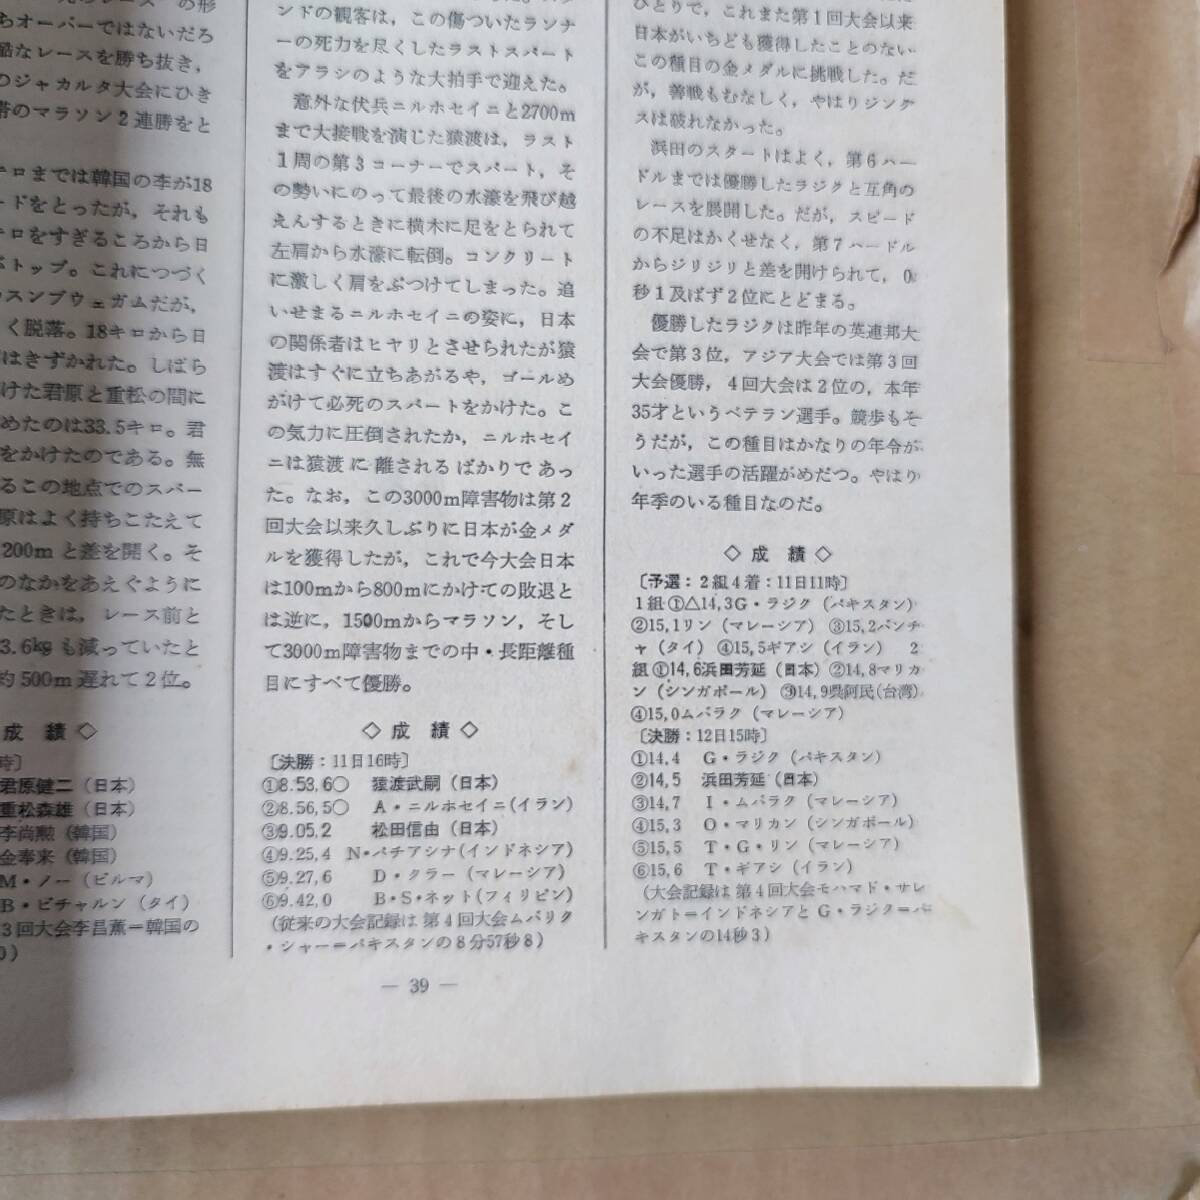 らオーバーではないだろ
酷なレースを勝ち抜き，
のジャカルタ大会にひき
帯のマラソン2連勝をと
キロまでは韓国の李が18
ードをとったが，それも
キロをすぎるころから日
がトップ。これにつづく
ッスンブウェガムだが，
く脱落。18キロから日
はきずかれた。しばら
けた君原と重松の間に
めたのは33.5キロ。君
をかけたのである。無
るこの地点でのスパー
原はよく持ちこたえて
200mと差を開く。そ
のなかをあえぐように
たときは，レース前と
3.6kgも減っていたと
約500m遅れて2位。
成 績◇
時〕
君原健二（日本）
重松森雄（日本）
李尚勲（韓国）
金奉来（韓国）
M・ノー（ビルマ）
B・ビチャルン（タイ）
3回大会李昌薫＝韓国の
0）
ンドの観客は，この傷ついたランナ
ーの死力を尽くしたラストスパート
をアラシのような大拍手で迎えた。
意外な伏兵ニルホセイニと2700m
まで大接戦を演じた猿渡は，ラスト
1周の第3コーナーでスパート，そ
の勢いにのって最後の水濠を飛び越
えんするときに横木に足をとられて
左肩から水濠に転倒。コンクリート
に激しく肩をぶつけてしまった。追
いせまるニルホセイニの姿に，日本
の関係者はヒヤリとさせられたが猿
渡はすぐに立ちあがるや，ゴールめ
がけて必死のスパートをかけた。こ
の気力に圧倒されたか，ニルホセイ
ニは猿渡に離されるばかりであっ
た。なお，この3000m障害物は第2
回大会以来久しぶりに日本が金メダ
ルを獲得したが，これで今大会日本
は100mから800mにかけての敗退と
は逆に，1500mからマラソン，そし
て3000m障害物までの中・長距離種
目にすべて優勝。
◇成 績◇
〔決勝：11日16時〕
①8.53,6○ 猿渡武嗣（日本）
②8.56,5○ A・ニルホセイニ（イラン）
③9.05,2 松田信由（日本）
④9.25,4 N・ペチアシナ（インドネシア）
⑤9.27,6 D・クラー（マレーシア）
⑥9.42,0 B・S・ネット（フィリピン）
（従来の大会記録は 第4回大会ムバリク
・シャー＝パキスタンの8分57秒8）
ひとりで，これまた第1回大会以来
日本がいちども獲得したことのない
この種目の金メダルに挑戦した。だ
が，善戦もむなしく，やはりジンク
スは破れなかった。
浜田のスタートはよく，第6ハー
ドルまでは優勝したラジクと互角の
レースを展開した。だが，スピード
の不足はかくせなく，第7ハードル
からジリジリと差を開けられて，0
秒1及ばず2位にとどまる。
優勝したラジクは昨年の英連邦大
会で第3位，アジア大会では第3回
大会優勝，4回大会は2位の，本年
35才というベテラン選手。競歩もそ
うだが，この種目はかなりの年令が
いった選手の活躍がめだつ。やはり
年季のいる種目なのだ。
◇成 績◇
〔予選：2組4着：11日11時〕
1組①△14,3G・ラジク（パキスタン）
②15,1リン（マレーシア） ③15,2パンチ
ャ（タイ） ④15,5ギアシ（イラン） 2
組①14,6浜田芳延（日本）②14,8マリカ
ン（シンガポール） ③14,9呉阿民（台湾）
④15,0ムバラク（マレーシア）
〔決勝：12日15時〕
①14,4 G・ラジク（パキスタン）
②14,5 浜田芳延（日本）
③14,7 I・ムバラク（マレーシア）
④15,3 O・マリカン（シンガポール）
⑤15,5 T・G・リン（マレーシア）
⑥15,6 T・ギアシ（イラン）
（大会記録は 第4回大会モハマド・サレ
ンガト＝インドネシアとG・ラジク＝パ
キスタンの14秒3）
— 39 —